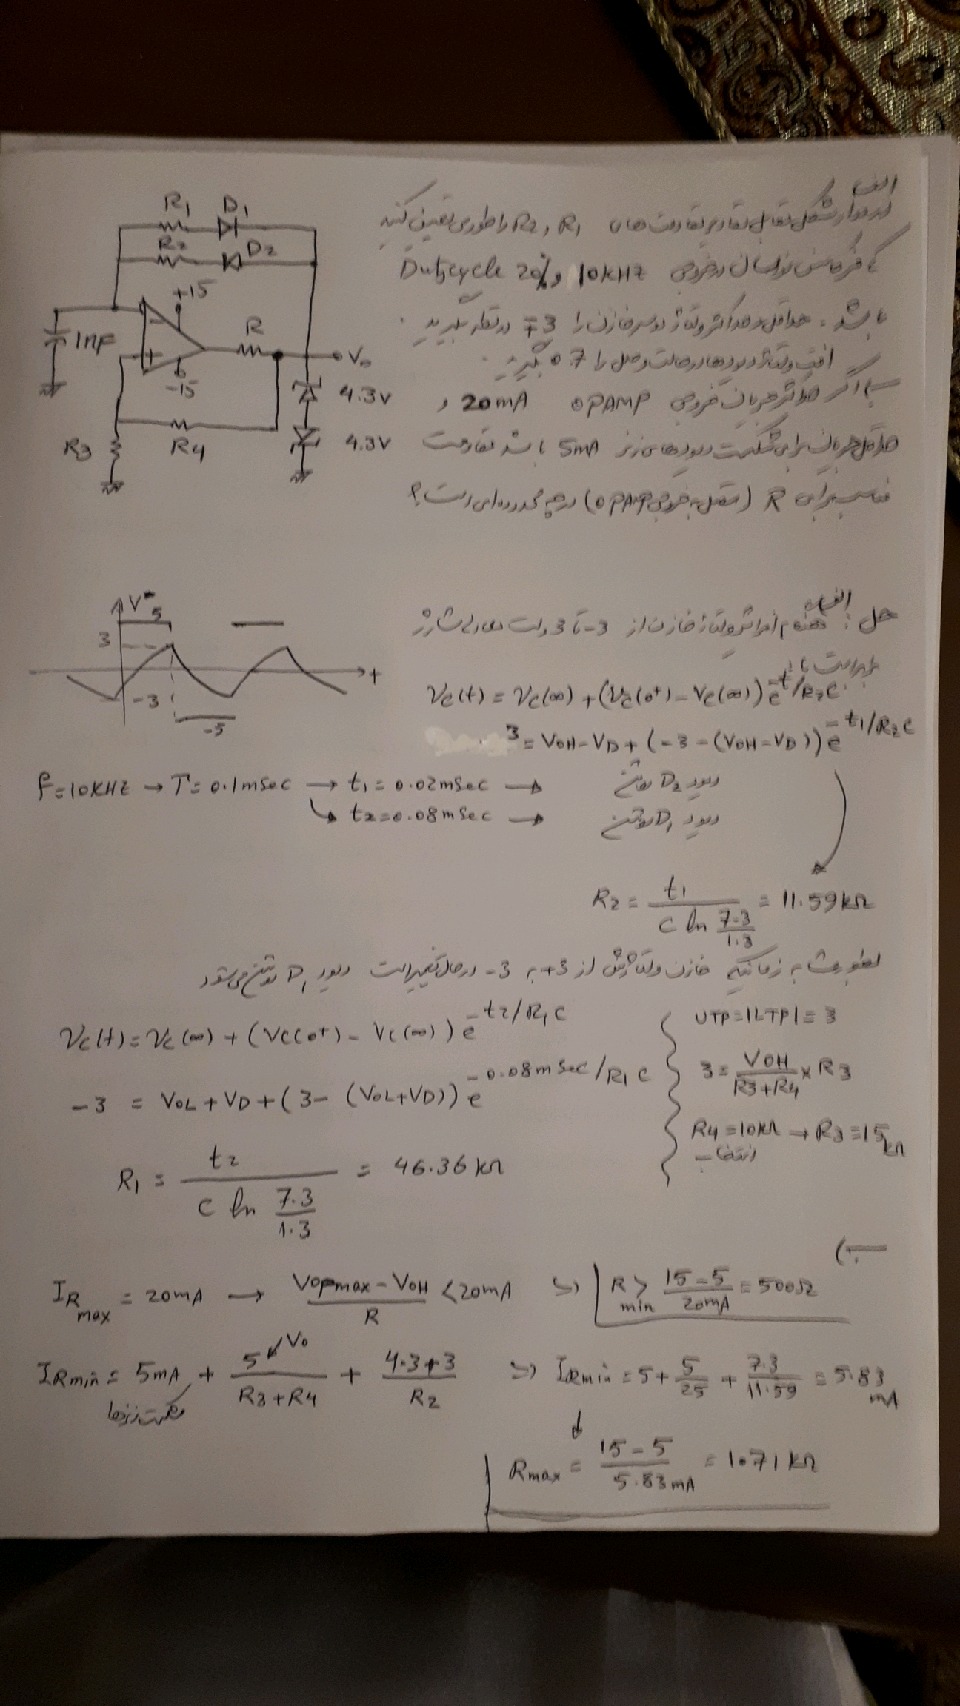 الف
در مدار شکل مقابل مقادیر مقاومت های R1 و R2 را طوری تعیین کنید
که فرکانس نوسان خروجی 10KHZ و Dutycycle 20%
باشد . حداقل و حداکثر ولتاژ دو سر خازن را ∓3 در نظر بگیرید .
افت ولتاژ دیودها در حالت وصل را 0.7 بگیرید .
ب) اگر حداکثر جریان خروجی OPAMP 20mA و
حداقل جریان برای شکست دیودهای زنر 5mA باشد مقاومت
مناسب برای R (متصل به خروجی OPAMP) در چه محدوده ای است؟
R1 D1
R2 D2
+15
1nF
-
+
-15
R
Vo
4.3V
4.3V
R3
R4
حل : الف) هنگام افزایش ولتاژ خازن از -3 تا 3 ولت معادله شارژ
برابر است با :
V
5
3
-3
-5
t
Vc(t) = Vc(∞) + (Vc(0+) - Vc(∞)) e^-t/R2C
3 = VOH - VD + (-3 - (VOH - VD)) e^-t1/R2C
f = 10KHZ → T = 0.1mSec → t1 = 0.02mSec → دیود D2 روشن
↳ t2 = 0.08mSec → دیود D1 روشن
R2 = t1 / (C ln 7.3/1.3) = 11.59kΩ
بطور مشابه زمانیکه خازن ولتاژش از +3 به -3 در حال تغییر است دیود D1 روشن می شود
Vc(t) = Vc(∞) + (Vc(0+) - Vc(∞)) e^-t2/R1C
-3 = VOL + VD + (3 - (VOL + VD)) e^-0.08mSec/R1C
R1 = t2 / (C ln 7.3/1.3) = 46.36kΩ
UTP = |LTP| = 3
3 = VOH / (R3+R4) × R3
R4 = 10kΩ → R3 = 15kΩ
انتخاب
ب)
IRmax = 20mA → (Vopmax - VOH) / R < 20mA ⇒ Rmin > (15-5) / 20mA = 500Ω
IRmin = 5mA + 5 / (R3+R4) + (4.3+3) / R2 ⇒ IRmin = 5 + 5/25 + 7.3/11.59 = 5.83mA
Vo
شکست زنرها
Rmax = (15-5) / 5.83mA = 1.71kΩ